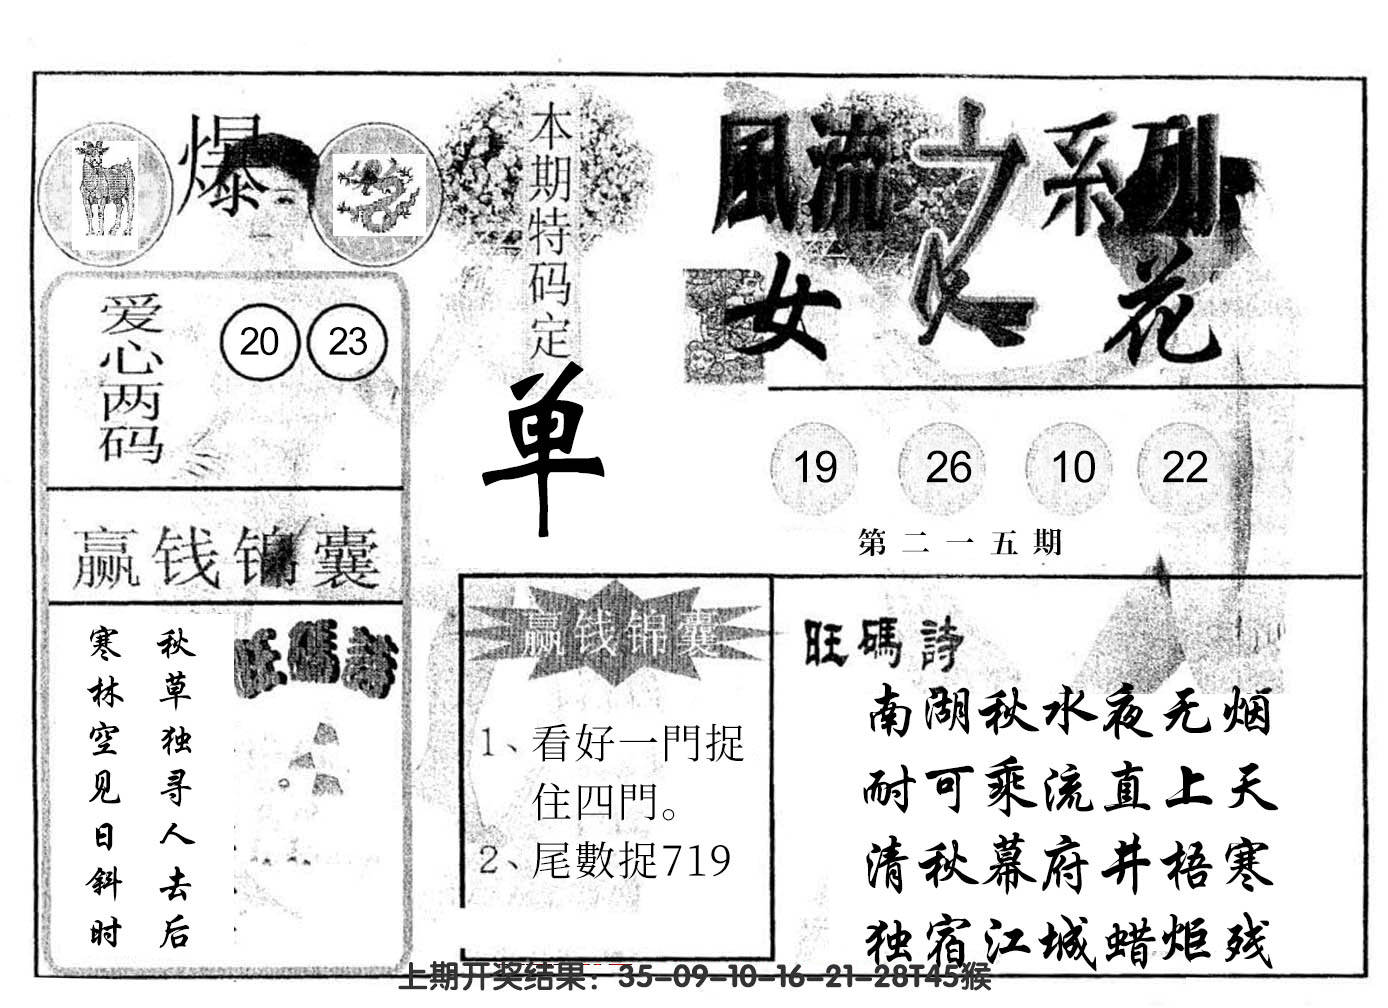 爆
本期特码定
单
風流之系列
女人花
爱心两码
20 23
19 26 10 22
第二一五期
赢钱锦囊
秋草独寻人去后
寒林空见日斜时
旺碼詩
赢钱锦囊
1、看好一門捉
住四門。
2、尾數捉719
旺碼詩
南湖秋水夜无烟
耐可乘流直上天
清秋幕府井梧寒
独宿江城蜡炬残
上期开奖结果：35-09-10-16-21-28T45猴